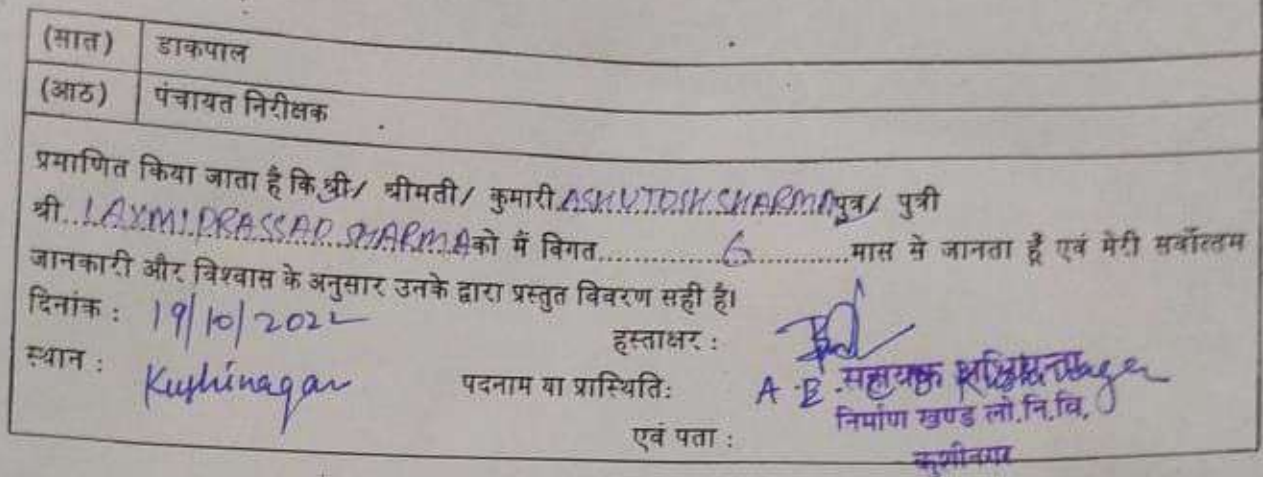 (सात) डाकपाल
(आठ) पंचायत निरीक्षक
प्रमाणित किया जाता है कि श्री/ श्रीमती/ कुमारी ASHUTOSH SHARMA पुत्र/ पुत्री
श्री..LAXMI PRASSAD SHARMA को मैं विगत..............6..............मास से जानता हूँ एवं मेरी सर्वोत्तम
जानकारी और विश्वास के अनुसार उनके द्वारा प्रस्तुत विवरण सही है।
दिनांक : 19/10/2022
हस्ताक्षर :
स्थान : Kushinagar
पदनाम या प्रास्थिति: A.E. सहायक
निर्माण खण्ड लो.नि.वि.
एवं पता :
कुशीनगर